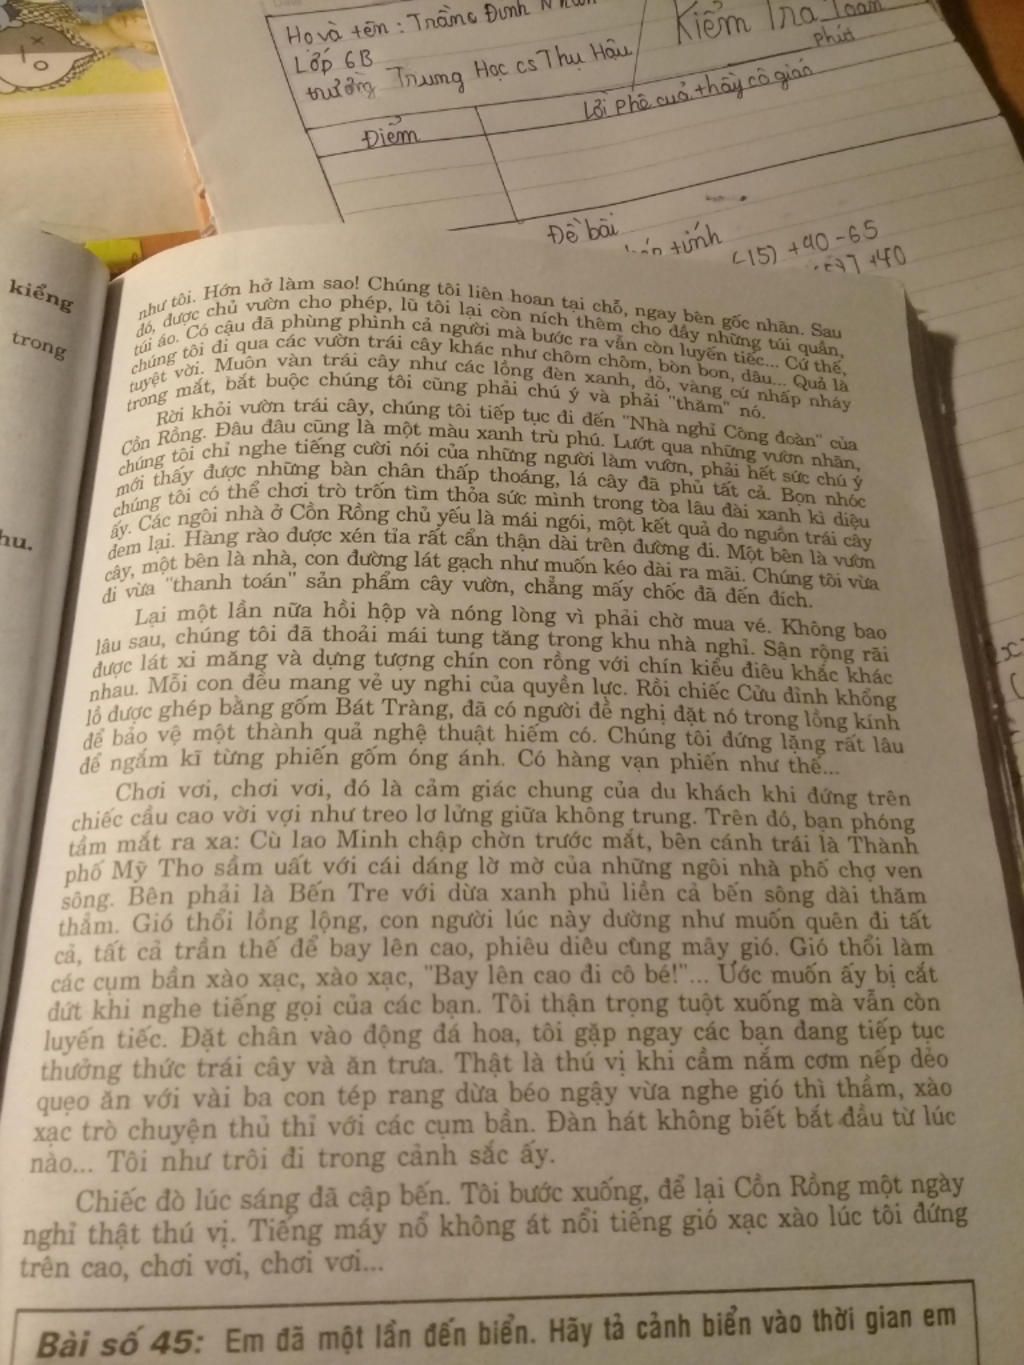 Họ và tên : Trần Đình
Lớp 6B
trường Trung Học cs Thụ Hậu
Kiểm Tra Toán
phút
Điểm
Lời phê của thầy cô giáo
Đề bài
tính
(-15) + 40 - 65
+40
kiểng
trong
hu.
như tôi. Hớn hở làm sao! Chúng tôi liên hoan tại chỗ, ngay bên gốc nhãn. Sau
đó, được chủ vườn cho phép, lũ tôi lại còn ních thêm cho đầy những túi quần,
túi áo. Có cậu đã phùng phình cả người mà bước ra vẫn còn luyến tiếc... Cứ thế,
chúng tôi đi qua các vườn trái cây khác như chôm chôm, bòn bon, dâu... Quả là
tuyệt vời. Muôn vàn trái cây như các lồng đèn xanh, đỏ, vàng cứ nhấp nháy
trong mắt, bắt buộc chúng tôi cũng phải chú ý và phải "thăm" nó.
Rời khỏi vườn trái cây, chúng tôi tiếp tục đi đến "Nhà nghỉ Công đoàn" của
Cồn Rồng. Đâu đâu cũng là một màu xanh trù phú. Lướt qua những vườn nhãn,
chúng tôi chỉ nghe tiếng cười nói của những người làm vườn, phải hết sức chú ý
mới thấy được những bàn chân thấp thoáng, lá cây đã phủ tất cả. Bọn nhóc
chúng tôi có thể chơi trò trốn tìm thỏa sức mình trong tòa lâu đài xanh kì diệu
ấy. Các ngôi nhà ở Cồn Rồng chủ yếu là mái ngói, một kết quả do nguồn trái cây
đem lại. Hàng rào được xén tỉa rất cẩn thận dài trên đường đi. Một bên là vườn
cây, một bên là nhà, con đường lát gạch như muốn kéo dài ra mãi. Chúng tôi vừa
đi vừa "thanh toán" sản phẩm cây vườn, chẳng mấy chốc đã đến đích.
Lại một lần nữa hồi hộp và nóng lòng vì phải chờ mua vé. Không bao
lâu sau, chúng tôi đã thoải mái tung tăng trong khu nhà nghỉ. Sân rộng rãi
được lát xi măng và dựng tượng chín con rồng với chín kiểu điêu khắc khác
nhau. Mỗi con đều mang vẻ uy nghi của quyền lực. Rồi chiếc Cửu đỉnh khổng
lồ được ghép bằng gốm Bát Tràng, đã có người đề nghị đặt nó trong lồng kính
để bảo vệ một thành quả nghệ thuật hiếm có. Chúng tôi đứng lặng rất lâu
để ngắm kĩ từng phiến gốm óng ánh. Có hàng vạn phiến như thế...
Chơi vơi, chơi vơi, đó là cảm giác chung của du khách khi đứng trên
chiếc cầu cao vời vợi như treo lơ lửng giữa không trung. Trên đó, bạn phóng
tầm mắt ra xa: Cù lao Minh chập chờn trước mắt, bên cánh trái là Thành
phố Mỹ Tho sầm uất với cái dáng lờ mờ của những ngôi nhà phố chợ ven
sông. Bên phải là Bến Tre với dừa xanh phủ liền cả bến sông dài thăm
thẳm. Gió thổi lồng lộng, con người lúc này dường như muốn quên đi tất
cả, tất cả trần thế để bay lên cao, phiêu diêu cùng mây gió. Gió thổi làm
các cụm bần xào xạc, xào xạc, "Bay lên cao đi cô bé!"... Ước muốn ấy bị cắt
đứt khi nghe tiếng gọi của các bạn. Tôi thận trọng tuột xuống mà vẫn còn
luyến tiếc. Đặt chân vào động đá hoa, tôi gặp ngay các bạn đang tiếp tục
thưởng thức trái cây và ăn trưa. Thật là thú vị khi cầm nắm cơm nếp dẻo
quẹo ăn với vài ba con tép rang dừa béo ngậy vừa nghe gió thì thầm, xào
xạc trò chuyện thủ thỉ với các cụm bần. Đàn hát không biết bắt đầu từ lúc
nào... Tôi như trôi đi trong cảnh sắc ấy.
Chiếc đò lúc sáng đã cập bến. Tôi bước xuống, để lại Cồn Rồng một ngày
nghỉ thật thú vị. Tiếng máy nổ không át nổi tiếng gió xạc xào lúc tôi đứng
trên cao, chơi vơi, chơi vơi...
Bài số 45: Em đã một lần đến biển. Hãy tả cảnh biển vào thời gian em